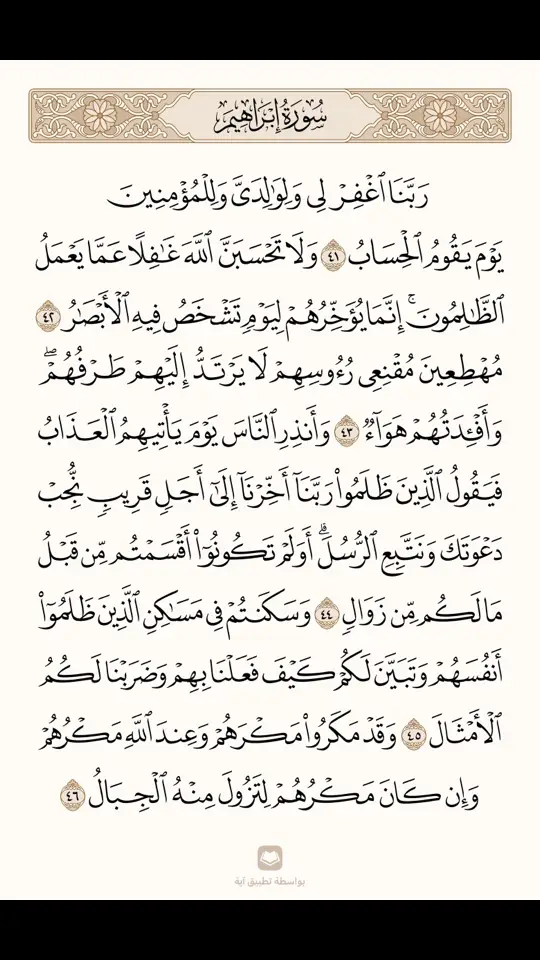 سُورَةُ إِبۡرَاهِيمَ
رَبَّنَا ٱغۡفِرۡ لِي وَلِوَٰلِدَيَّ وَلِلۡمُؤۡمِنِينَ
يَوۡمَ يَقُومُ ٱلۡحِسَابُ ٤١ وَلَا تَحۡسَبَنَّ ٱللَّهَ غَٰفِلًا عَمَّا يَعۡمَلُ
ٱلظَّٰلِمُونَۚ إِنَّمَا يُؤَخِّرُهُمۡ لِيَوۡمٖ تَشۡخَصُ فِيهِ ٱلۡأَبۡصَٰرُ ٤٢
مُهۡطِعِينَ مُقۡنِعِي رُءُوسِهِمۡ لَا يَرۡتَدُّ إِلَيۡهِمۡ طَرۡفُهُمۡۖ
وَأَفۡـِٔدَتُهُمۡ هَوَآءٞ ٤٣ وَأَنذِرِ ٱلنَّاسَ يَوۡمَ يَأۡتِيهِمُ ٱلۡعَذَابُ
فَيَقُولُ ٱلَّذِينَ ظَلَمُواْ رَبَّنَآ أَخِّرۡنَآ إِلَىٰٓ أَجَلٖ قَرِيبٖ نُّجِبۡ
دَعۡوَتَكَ وَنَتَّبِعِ ٱلرُّسُلَۗ أَوَلَمۡ تَكُونُوٓاْ أَقۡسَمۡتُم مِّن قَبۡلُ
مَا لَكُم مِّن زَوَالٖ ٤٤ وَسَكَنتُمۡ فِي مَسَٰكِنِ ٱلَّذِينَ ظَلَمُوٓاْ
أَنفُسَهُمۡ وَتَبَيَّنَ لَكُمۡ كَيۡفَ فَعَلۡنَا بِهِمۡ وَضَرَبۡنَا لَكُمُ
ٱلۡأَمۡثَالَ ٤٥ وَقَدۡ مَكَرُواْ مَكۡرَهُمۡ وَعِندَ ٱللَّهِ مَكۡرُهُمۡ
وَإِن كَانَ مَكۡرُهُمۡ لِتَزُولَ مِنۡهُ ٱلۡجِبَالُ ٤٦
بواسطة تطبيق آية